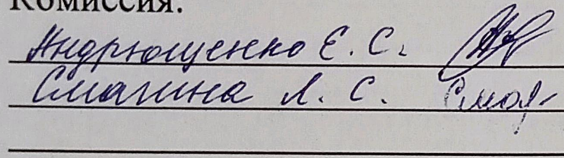 Комиссия:
Андрющенко Е. С.
Смагина Л. С.